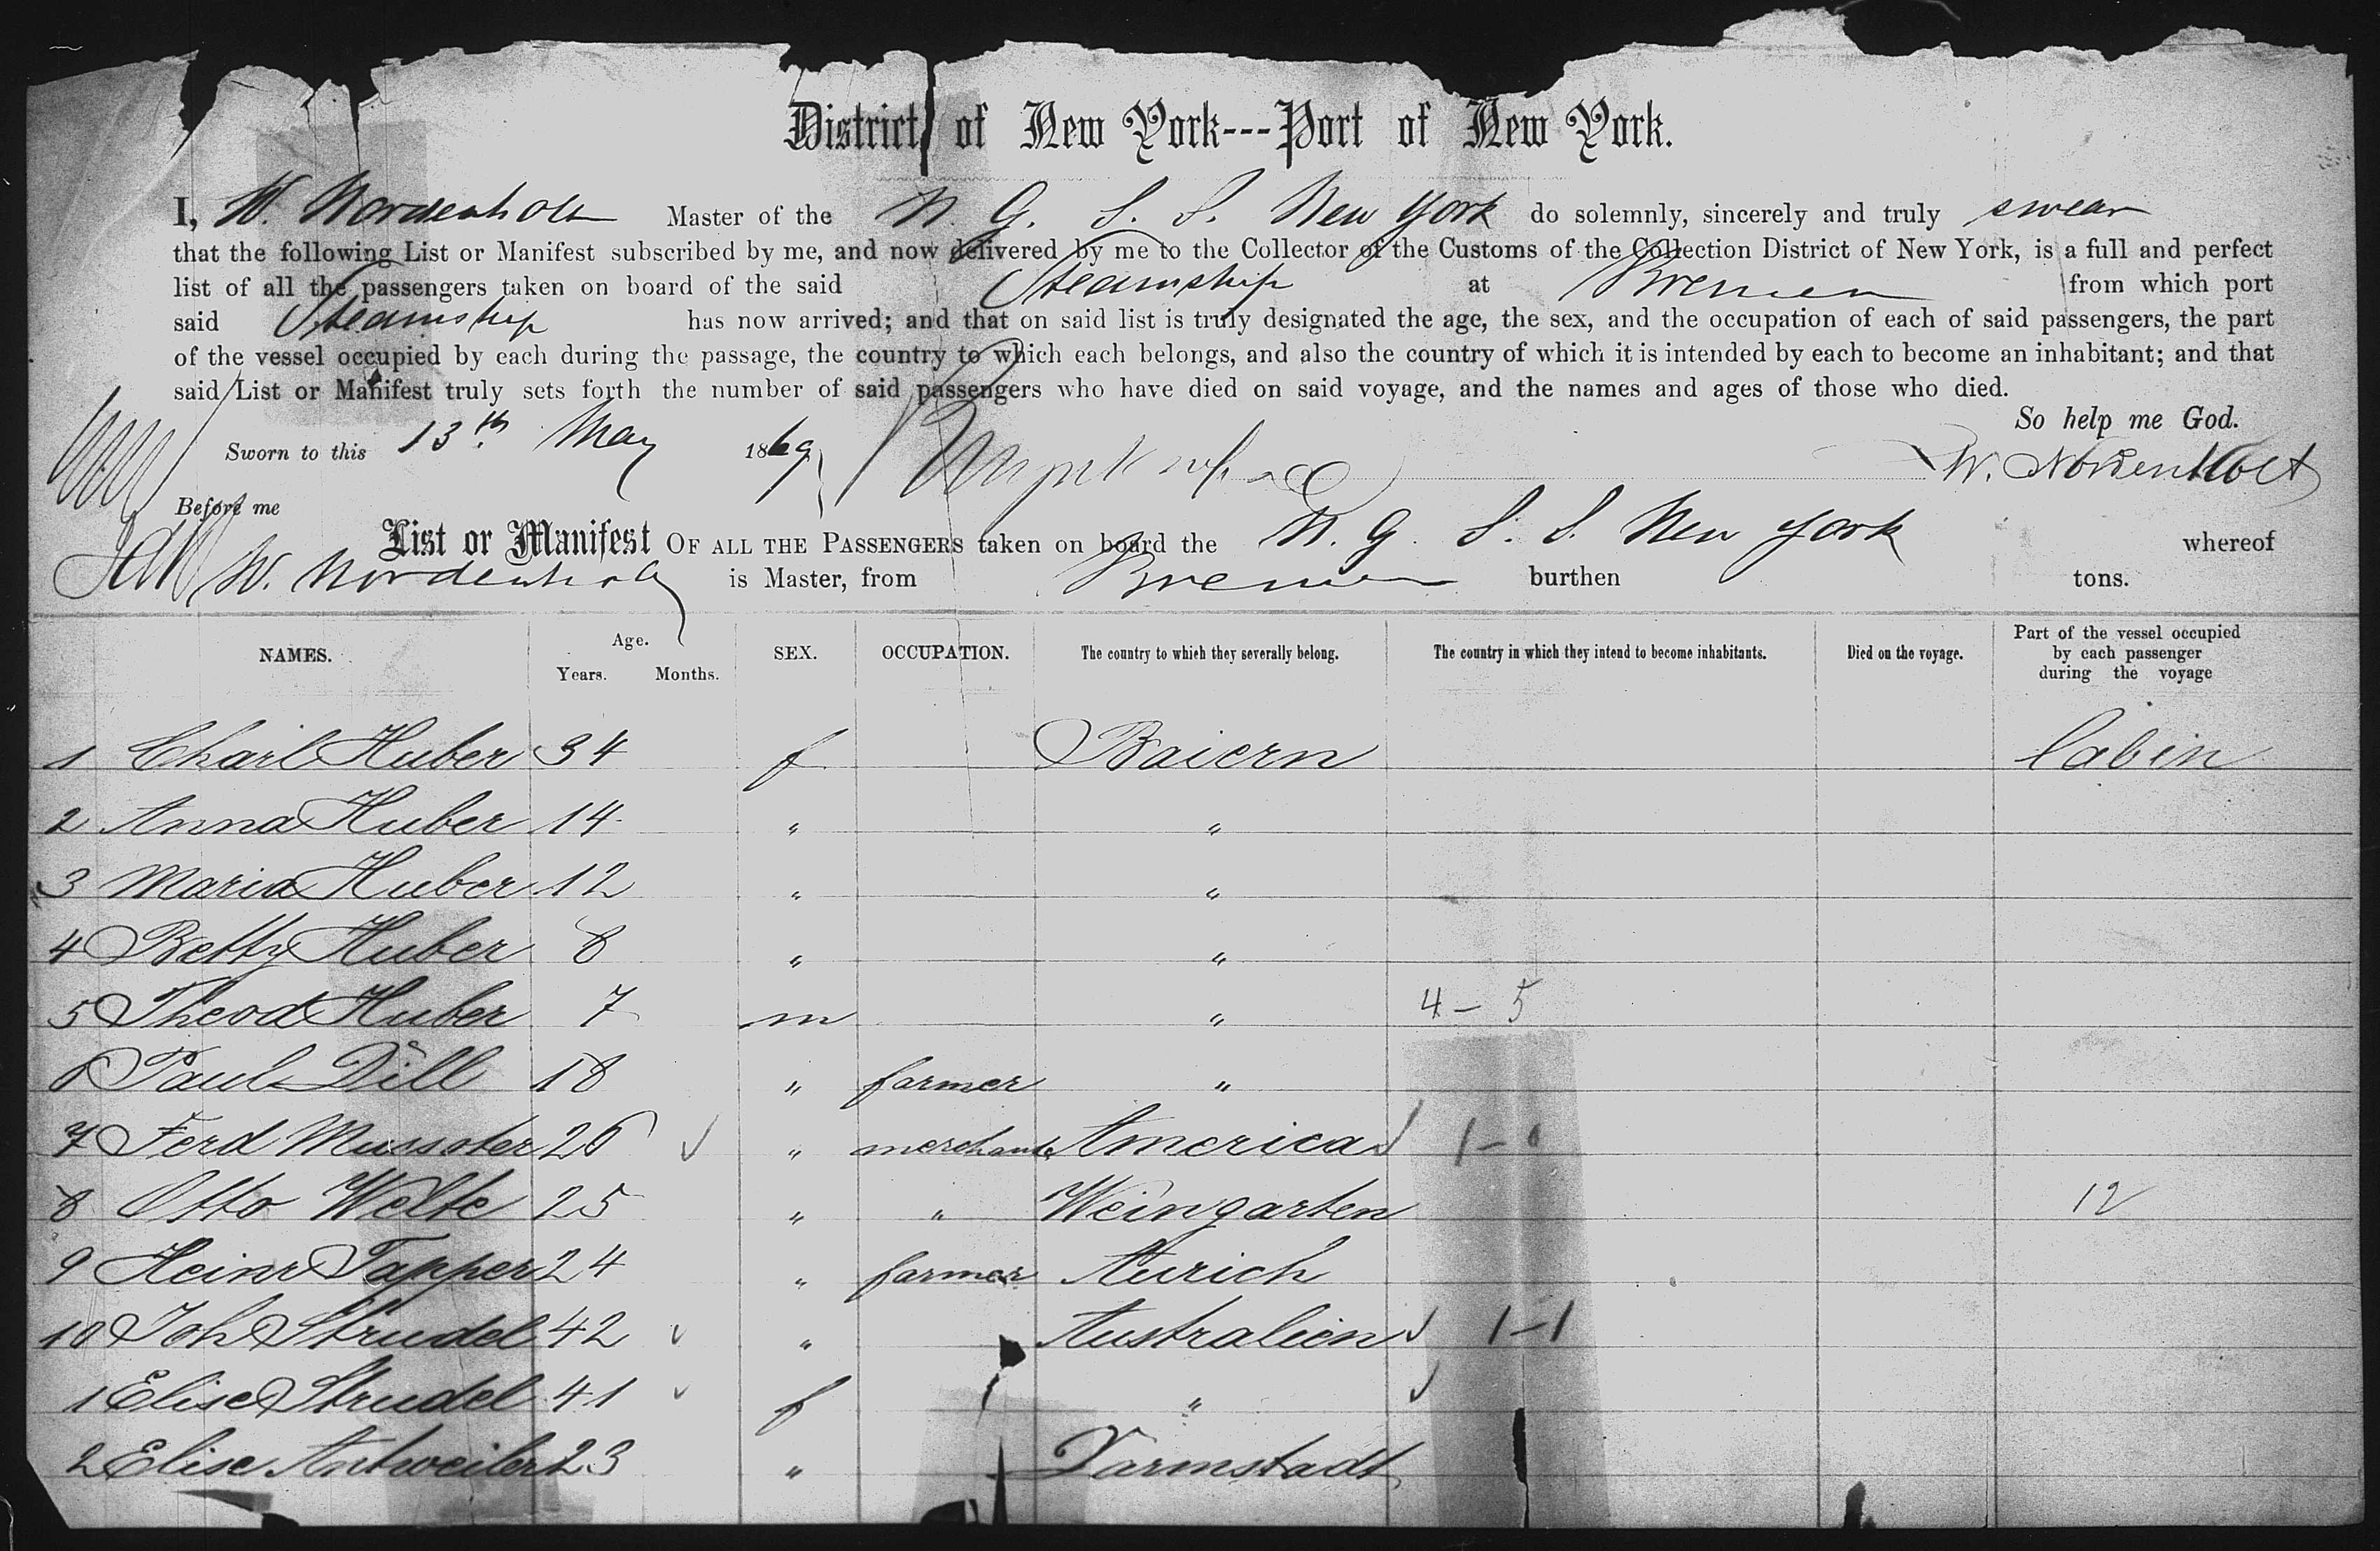 District of New York---Port of New York.
I, W. Nordenholt Master of the N. G. S. S. New York do solemnly, sincerely and truly swear
that the following List or Manifest subscribed by me, and now delivered by me to the Collector of the Customs of the Collection District of New York, is a full and perfect
list of all the passengers taken on board of the said Steamship at Bremen from which port
said Steamship has now arrived; and that on said list is truly designated the age, the sex, and the occupation of each of said passengers, the part
of the vessel occupied by each during the passage, the country to which each belongs, and also the country of which it is intended by each to become an inhabitant; and that
said List or Manifest truly sets forth the number of said passengers who have died on said voyage, and the names and ages of those who died.
So help me God.
Sworn to this 13th May 1869 W. Nordenholt
Before me
List or Manifest OF ALL THE PASSENGERS taken on board the N. G. S. S. New York whereof
W. Nordenholt is Master, from Bremen burthen tons.
NAMES. Age. Years. Months. SEX. OCCUPATION. The country to which they severally belong. The country in which they intend to become inhabitants. Died on the voyage. Part of the vessel occupied by each passenger during the voyage
1 Charl Huber 34 f Baiern Cabin
2 Anna Huber 14 " "
3 Maria Huber 12 " "
4 Betty Huber 8 " "
5 Theod Huber 7 m " 4 - 5
6 Paul Dill 18 " farmer "
7 Ferd 26 ✓ " merchant America ✓ 1 -
8 Otto Welte 25 " " Weingarten 12
9 Heinr Tapper 24 " farmer Aurich
10 Joh Strudel 42 ✓ " Australien ✓ 1 - 1
1 Elise Strudel 41 ✓ f " ✓
2 Elise Antweiler 23 " Darmstadt